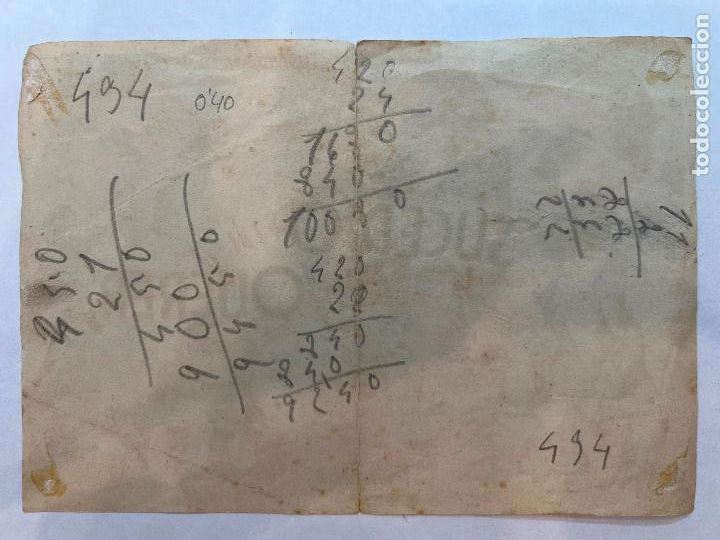 494
0'40
420
24
1680
840
10080
420
22
840
840
9240
450
21
450
900
9450
494
todocoleccion